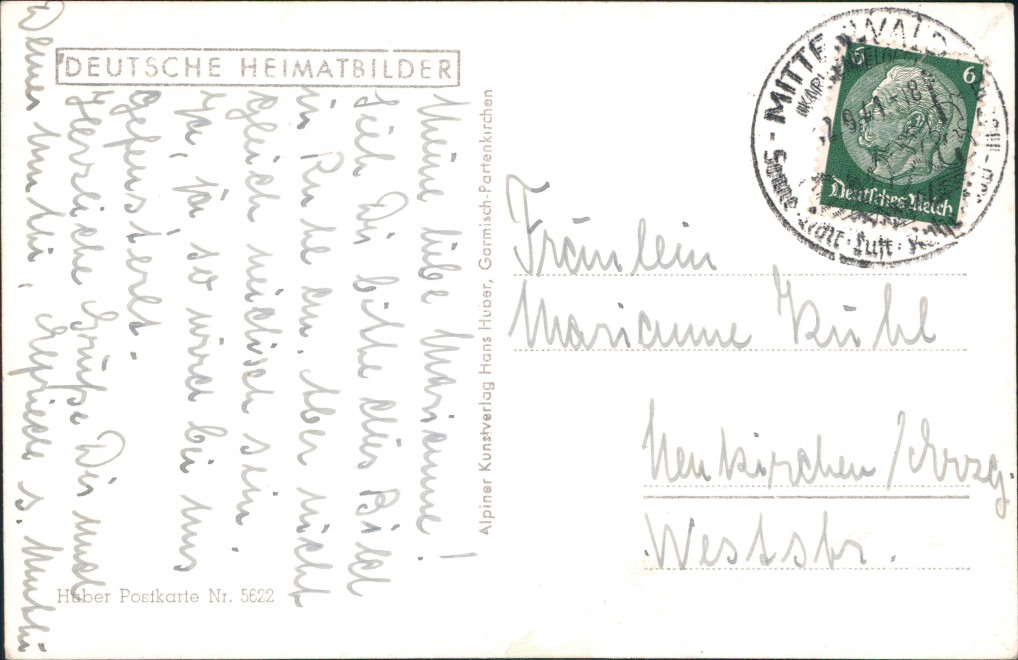 DEUTSCHE HEIMATBILDER
Meine liebe Marianne!
Sieh Dir bitte dies Bild
in Ruhe an. Aber nicht
gleich neidisch sein.
Ja, ja so wird bei uns
gefensterlt.
Herzliche Grüße Dir und
Deiner Mutti, u. Mutti
Alpiner Kunstverlag Hans Huber, Garmisch-Partenkirchen
Huber Postkarte Nr. 5622
MITTENWALD
9.41-18
Sonne · Licht · Luft ·
6 6
Deutsches Reich
Fräulein
Marianne Kühl
Neukirchen / Erzg.
Weststr.